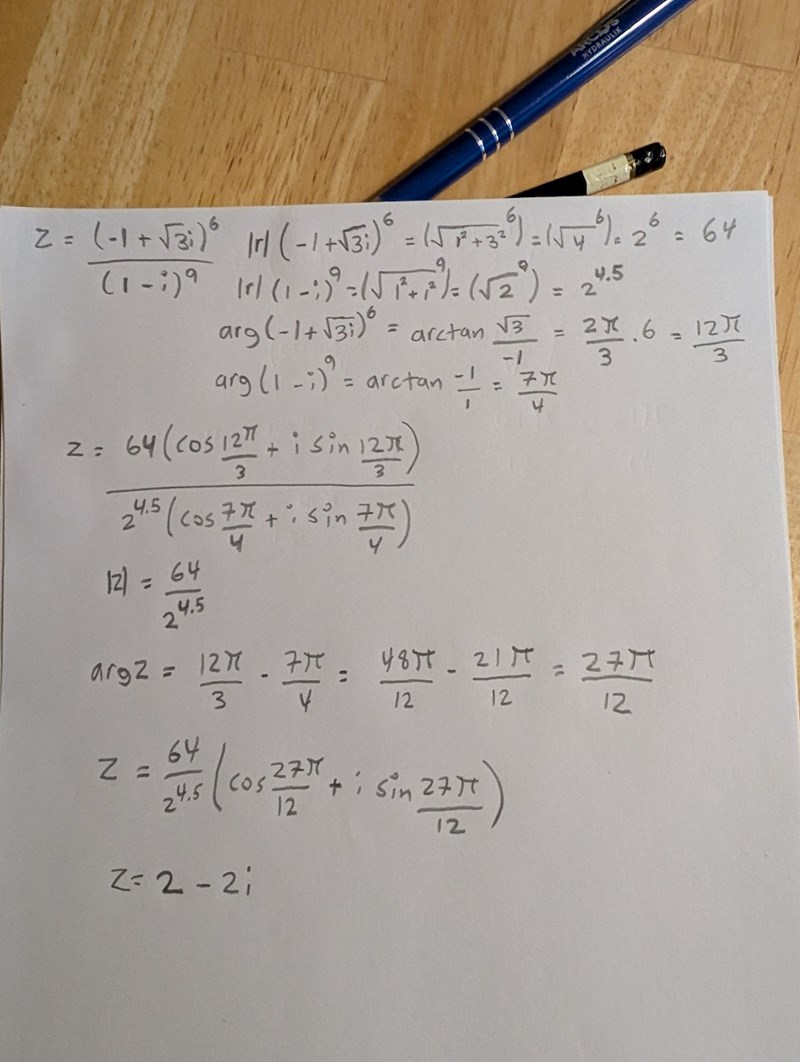 ARCUS
HYDRAULIK
z = (-1 + √3i)^6 / (1 - i)^9 |r| (-1 + √3i)^6 = (√1² + 3²^6) = (√4^6) = 2^6 = 64
|r| (1 - i)^9 = (√1² + 1²^9) = (√2^9) = 2^4.5
arg(-1 + √3i)^6 = arctan √3/-1 = 2π/3 · 6 = 12π/3
arg(1 - i)^9 = arctan -1/1 = 7π/4
z = 64(cos 12π/3 + i sin 12π/3) / 2^4.5(cos 7π/4 + i sin 7π/4)
|z| = 64/2^4.5
arg z = 12π/3 - 7π/4 = 48π/12 - 21π/12 = 27π/12
z = 64/2^4.5 (cos 27π/12 + i sin 27π/12)
z = 2 - 2i